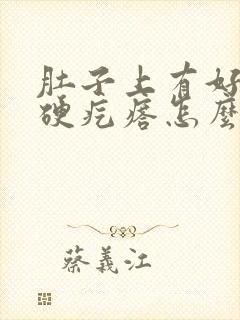 肚子上有好
硬疙瘩怎麽
蔡義江